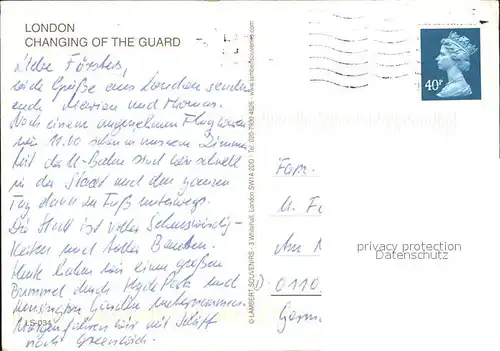 LONDON
CHANGING OF THE GUARD
Liebe Försters,
viele Grüße aus London senden
euch Marion und Thomas.
Nach einem angenehmen Flug waren
wir 11.00 schon in unserem Zimmer.
Mit der U-Bahn sind wir schnell
in der Stadt und den ganzen
Tag dann zu Fuß unterwegs.
Die Stadt ist voller Sehenswürdig-
keiten und toller Bauten.
Heute haben wir einen großen
Bummel durch Hyde Park und
Kensington Garden unternommen.
Morgen fahren wir mit Schiff
nach Greenwich.
LS-034
© LAMBERT SOUVENIRS - 3 Whitehall, London SW1A 2DD
40P
Fam.
M. Fö
An
0110
Germ
privacy protection
Datenschutz